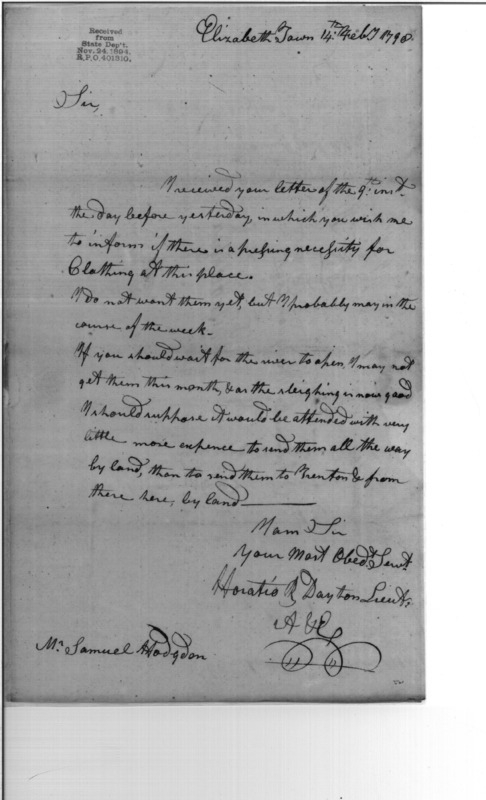 Received
from
State Dep't.
Nov. 24. 1894.
R.P.O. 401310.
Elizabeth Town 14th Feby 1798
Sir,
I received your letter of the 9th inst.
the day before yesterday, in which you wish me
to inform if there is a pressing necessity for
Cloathing at this place.
I do not want them yet, but I probably may in the
course of the week.
If you should wait for the river to open, I may not
get them this month, & as the sleighing is now good
I should suppose it would be attended with very
little more expence to send them all the way
by land, than to send them to Trenton & from
there here, by land
I am Sir
Your Most Obedt. Servt.
Horatio R Dayton Lieut.
A & E
Mr. Samuel Hodgdon